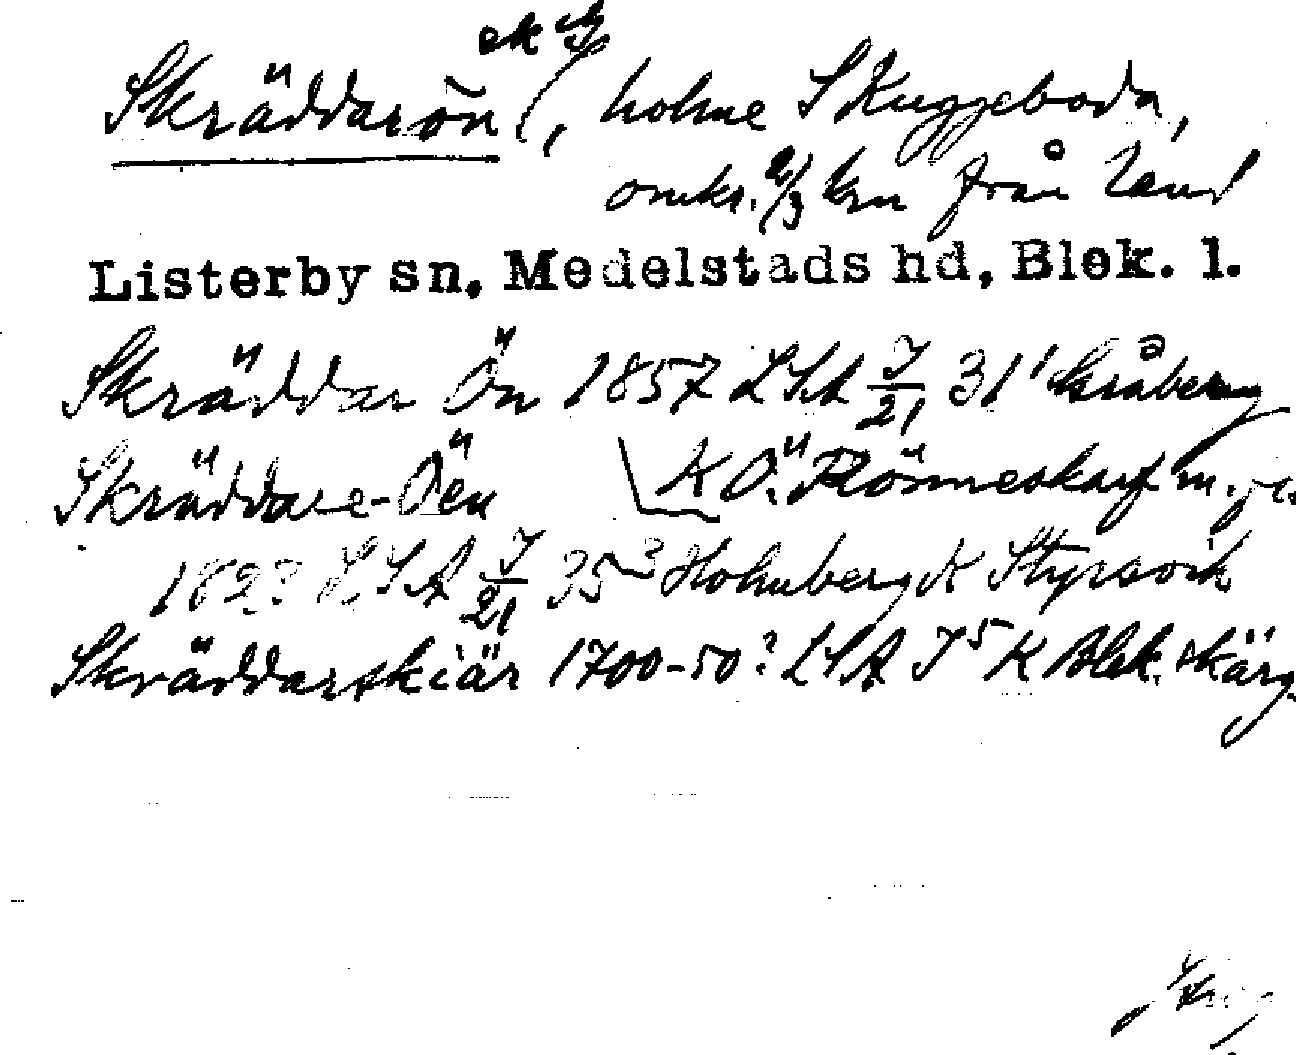 ek
Skräddarön, holme S Kuggeboda,
omkr. 2/3 km från land
Listerby sn, Medelstads hd, Blek. l.
Skräddar Ön 1857 LSA J/21 31¹ Skråberg
Skräddare-Öen K Ö. Rönneskarf m.
182? LSA J/21 35³ Holmberg K Styrsvik
Skräddarskiär 1700-50? LSA J⁵ K Blek. skärg.